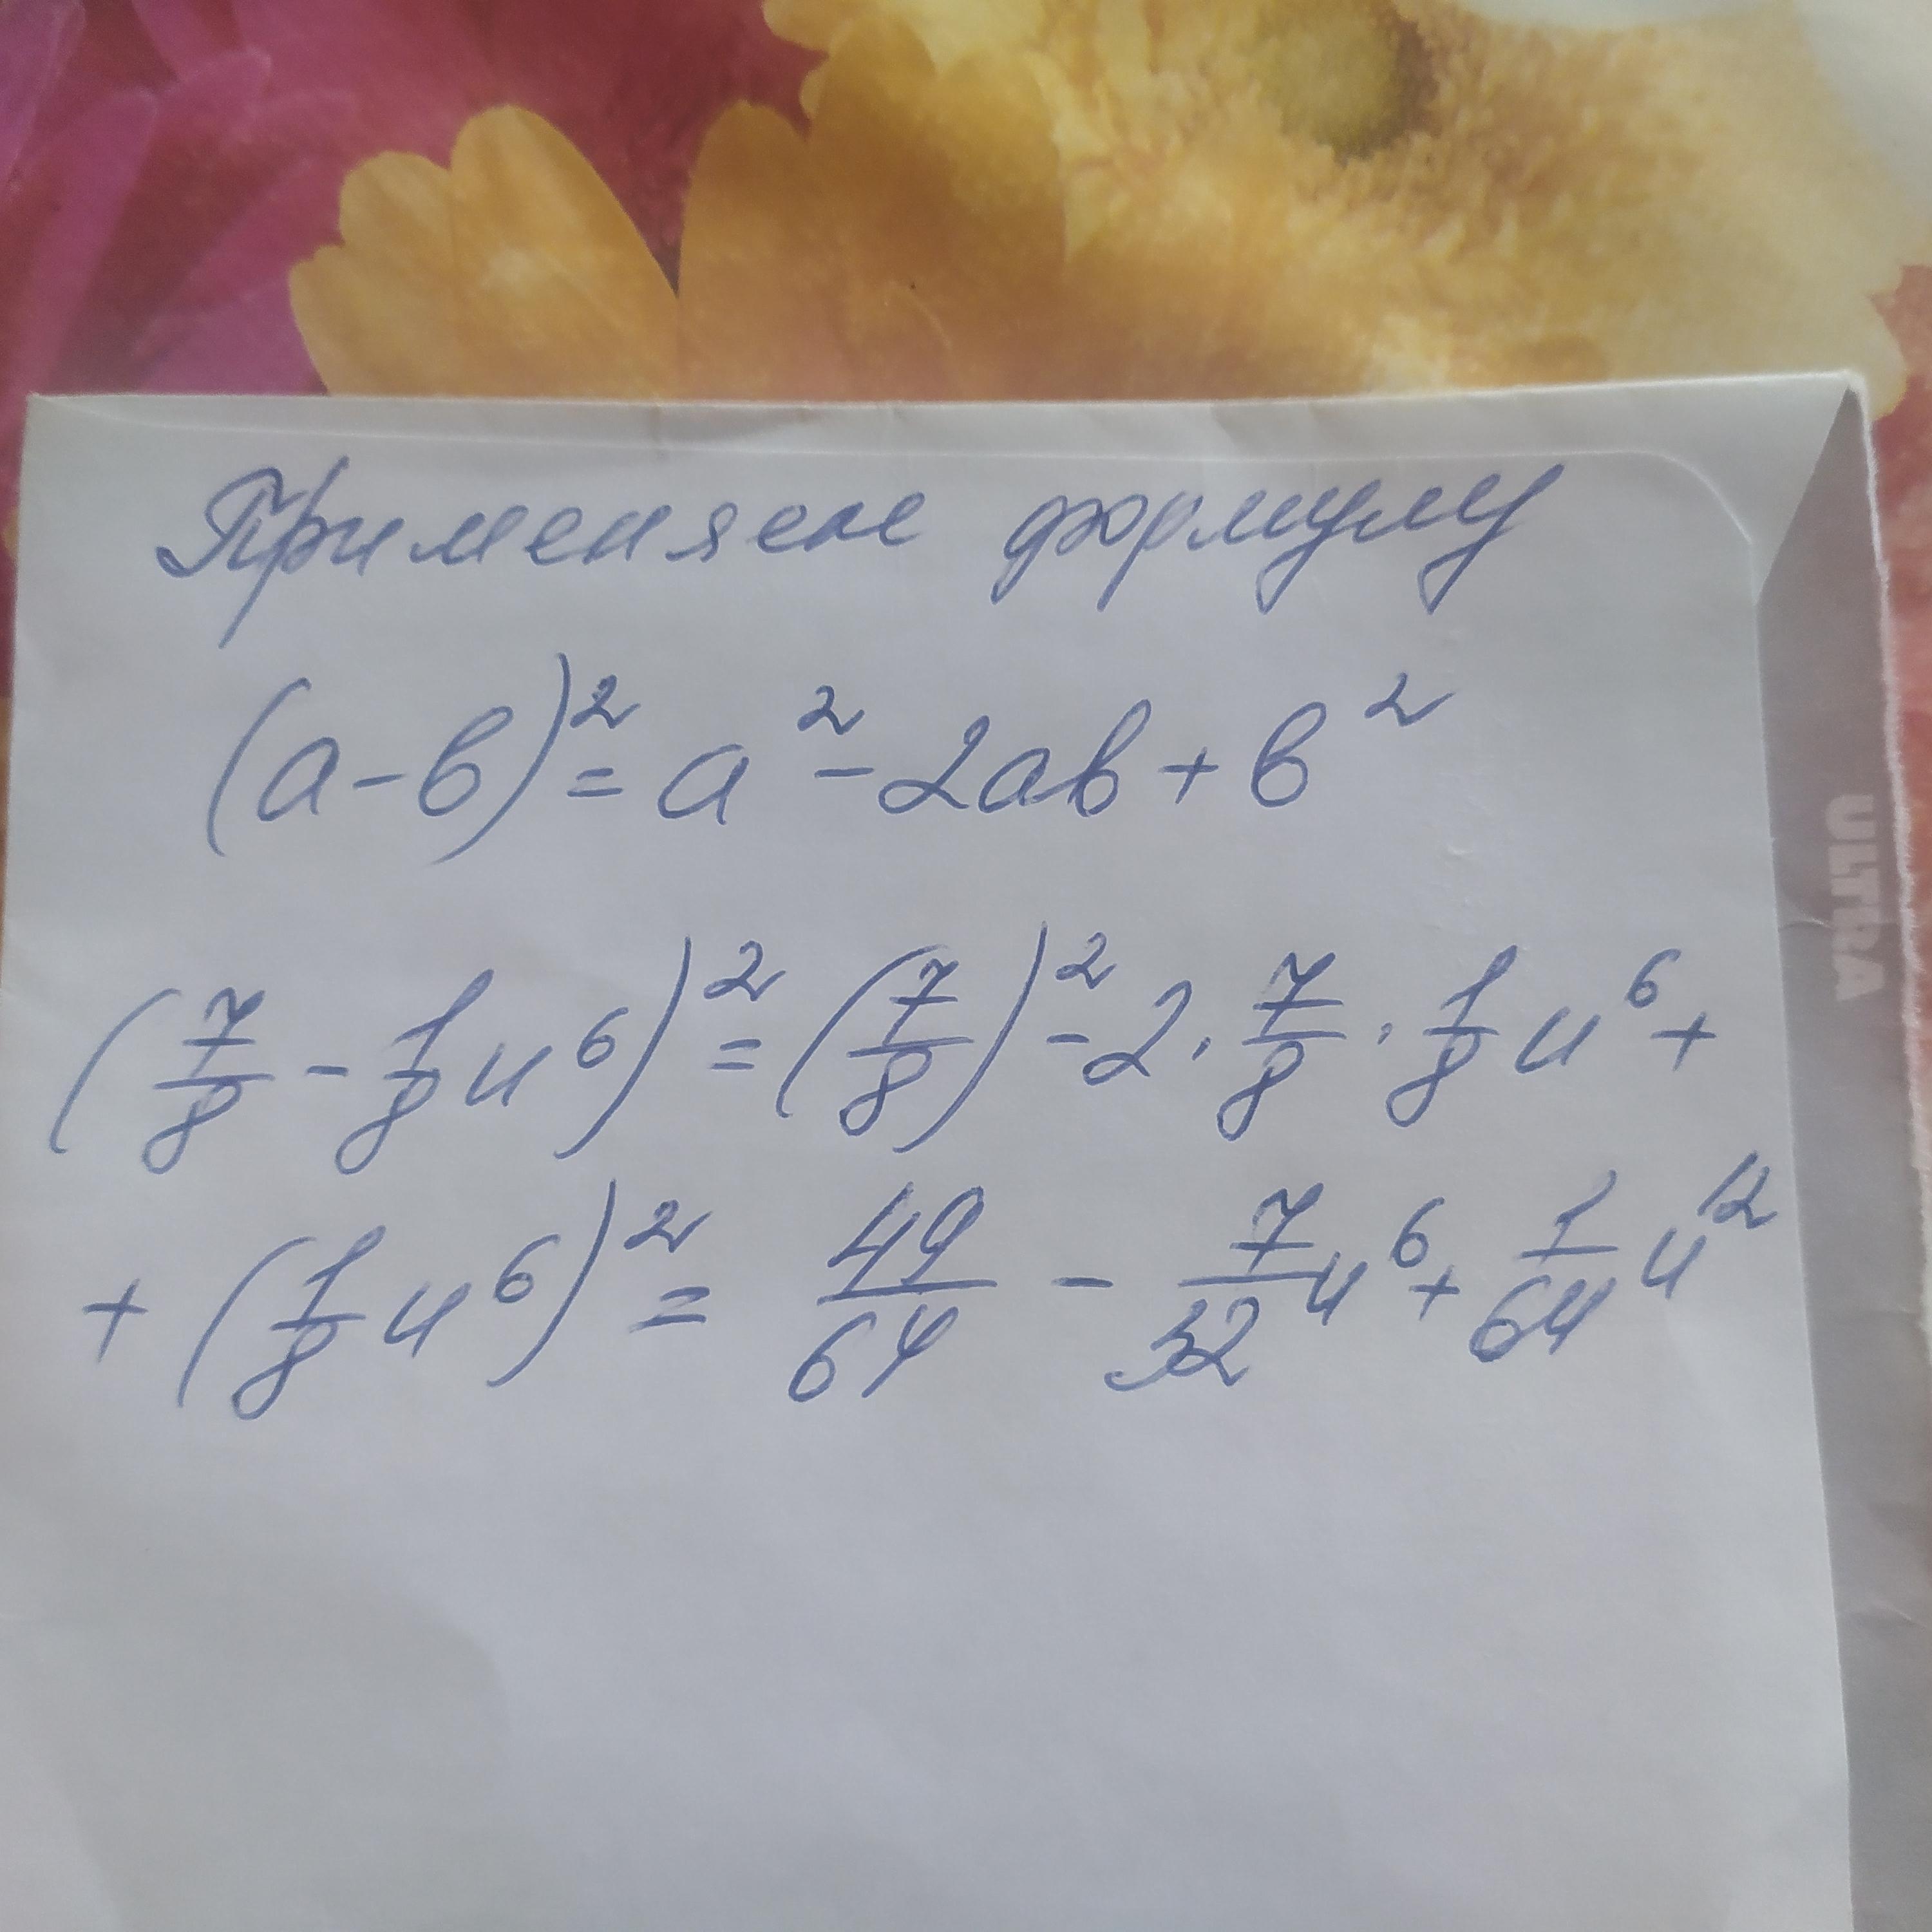 Применяем формулу
(a-b)²=a²-2ab+b²
(7/8-1/8u⁶)²=(7/8)²-2·7/8·1/8u⁶+
+(1/8u⁶)²=49/64-7/32u⁶+1/64u¹²
ULTRA